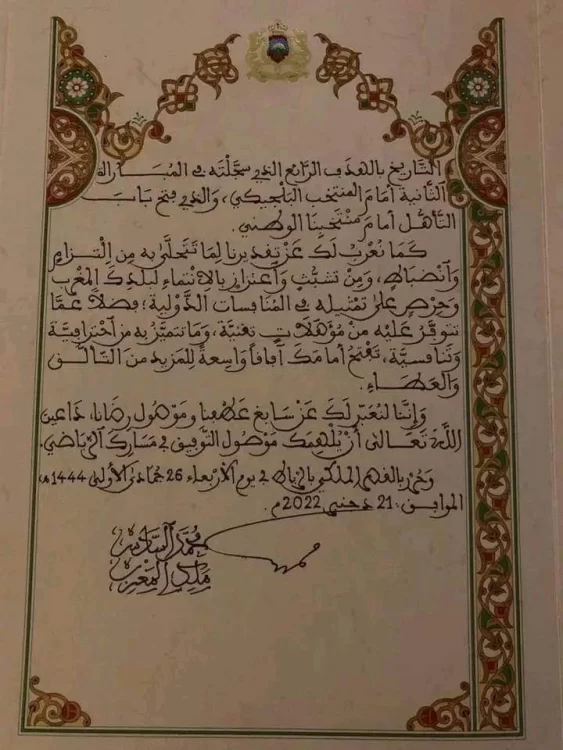 التاريخ بالهدف الرائع الذي سجلته في المباراة
الثانية أمام المنتخب البلجيكي، والذي فتح باب
التأهل أمام منتخبنا الوطني.
كما نعرب لك عن تقديرنا لما تتحلى به من التزام
وانضباط، ومن تشبث واعتزاز بالانتماء لبلدك المغرب
وحرص على تمثيله في المنافسات الدولية؛ فضلا عما
تتوفر عليه من مؤهلات تقنية، وما تتميز به من احترافية
وتنافسية، تفتح أمامك آفاقا واسعة للمزيد من التألق
والعطاء.
وإننا لنعبر لك عن سابغ عطفنا وموصول رضانا، داعين
الله تعالى أن يلهمك موصول التوفيق في مسارك الرياضي.
وحرر بالقصر الملكي بالرباط في يوم الأربعاء 26 جمادى الأولى 1444 هـ
الموافق: 21 دجنبر 2022 م.
محمد السادس
ملك المغرب